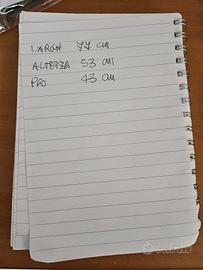 LARGH 77 CM
ALTEZZA 53 CM
PRO 43 CM
subito